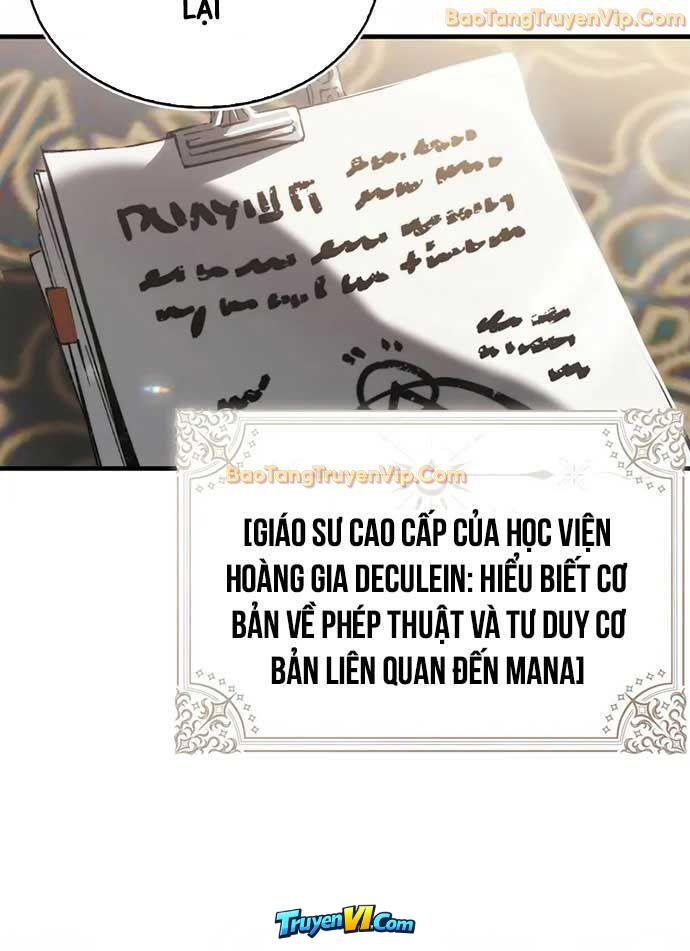 LẠI
BaoTangTruyenVip.Com
BaoTangTruyenVip.Com
[GIÁO SƯ CAO CẤP CỦA HỌC VIỆN
HOÀNG GIA DECULEIN: HIỂU BIẾT CƠ
BẢN VỀ PHÉP THUẬT VÀ TƯ DUY CƠ
BẢN LIÊN QUAN ĐẾN MANA]
TruyenVI.Com